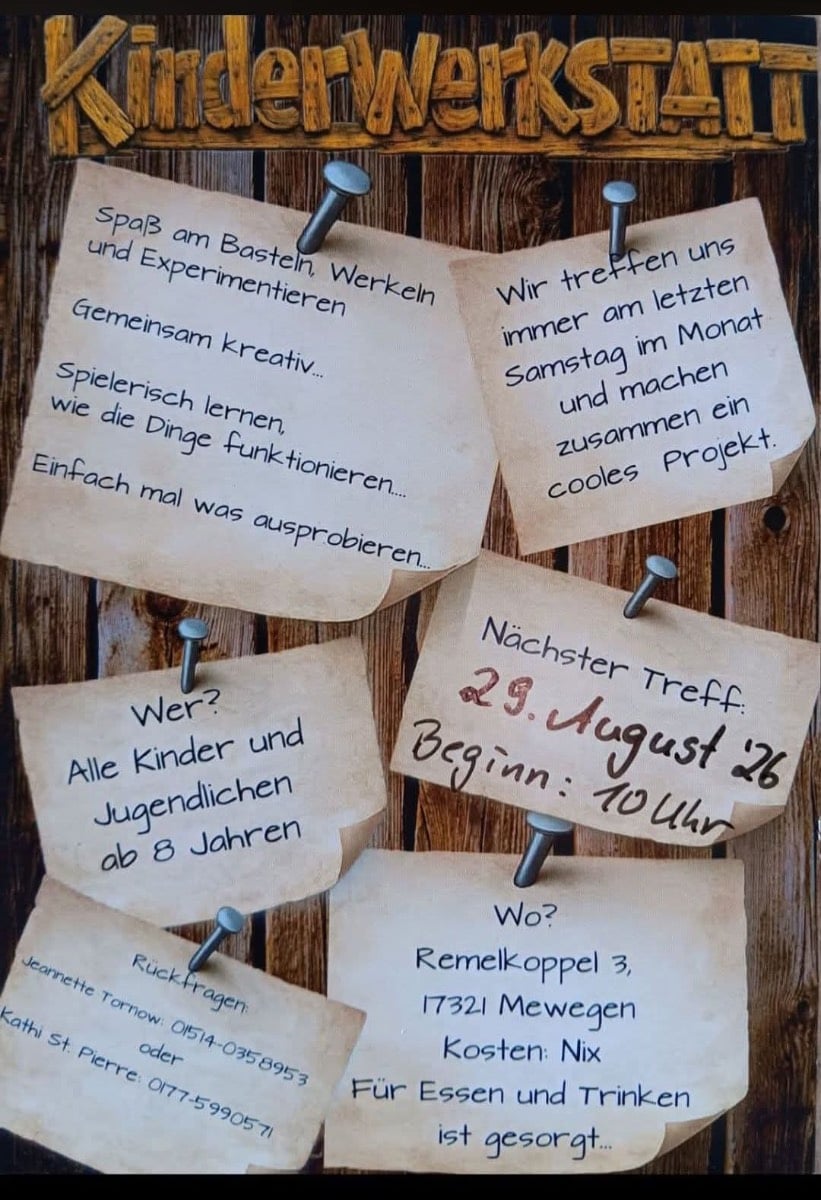 KinderwerkSTATT
Spaß am Basteln, Werkeln
und Experimentieren
Gemeinsam kreativ...
Spielerisch lernen,
wie die Dinge funktionieren....
Einfach mal was ausprobieren...
Wir treffen uns
immer am letzten
Samstag im Monat
und machen
zusammen ein
cooles Projekt.
Nächster Treff:
29. August '26
Beginn: 10 Uhr
Wer?
Alle Kinder und
Jugendlichen
ab 8 Jahren
Wo?
Remelkoppel 3,
17321 Mewegen
Kosten: Nix
Für Essen und Trinken
ist gesorgt...
Rückfragen:
Jeannette Tornow: 01514-0358953
oder
Kathi St. Pierre: 0177-5990571